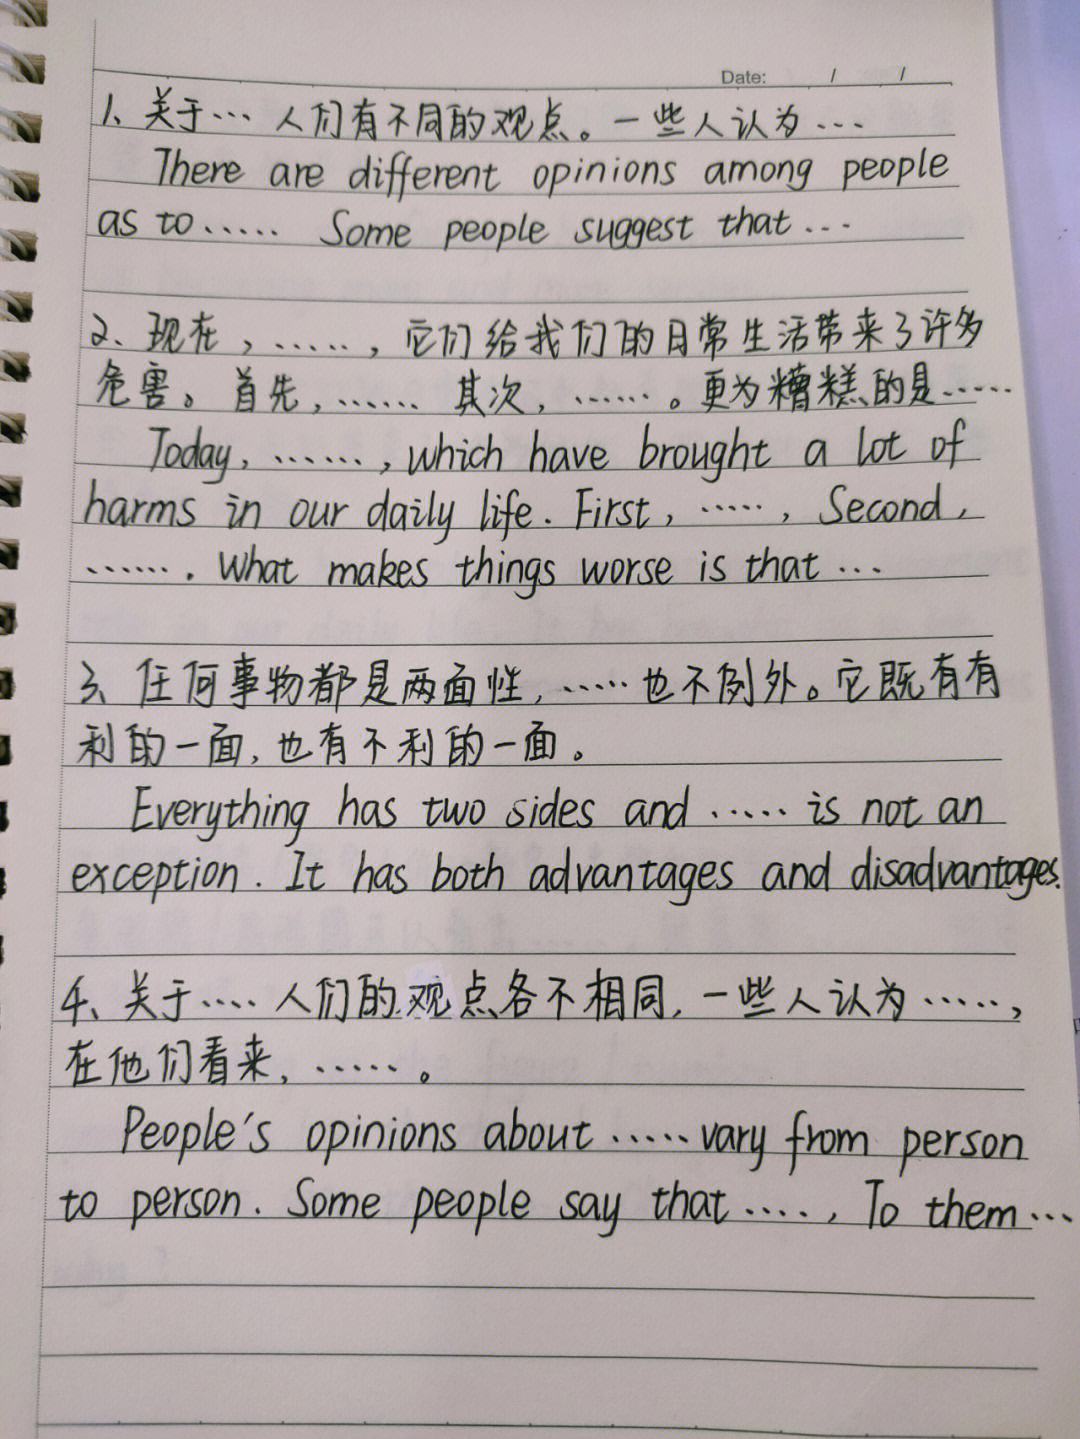 Date:    /    /
1、关于… 人们有不同的观点。一些人认为…
There are different opinions among people
as to..... Some people suggest that...
2、现在，……，它们给我们的日常生活带来了许多
危害。首先，…… 其次，……。更为糟糕的是……
Today, ……, which have brought a lot of
harms in our daily life. First, ……, Second,
……. What makes things worse is that...
3、任何事物都是两面性，……也不例外。它既有有
利的一面，也有不利的一面。
Everything has two sides and ..... is not an
exception. It has both advantages and disadvantages.
4、关于…. 人们的观点各不相同，一些人认为……，
在他们看来，……。
People's opinions about .....vary from person
to person. Some people say that ...., To them...